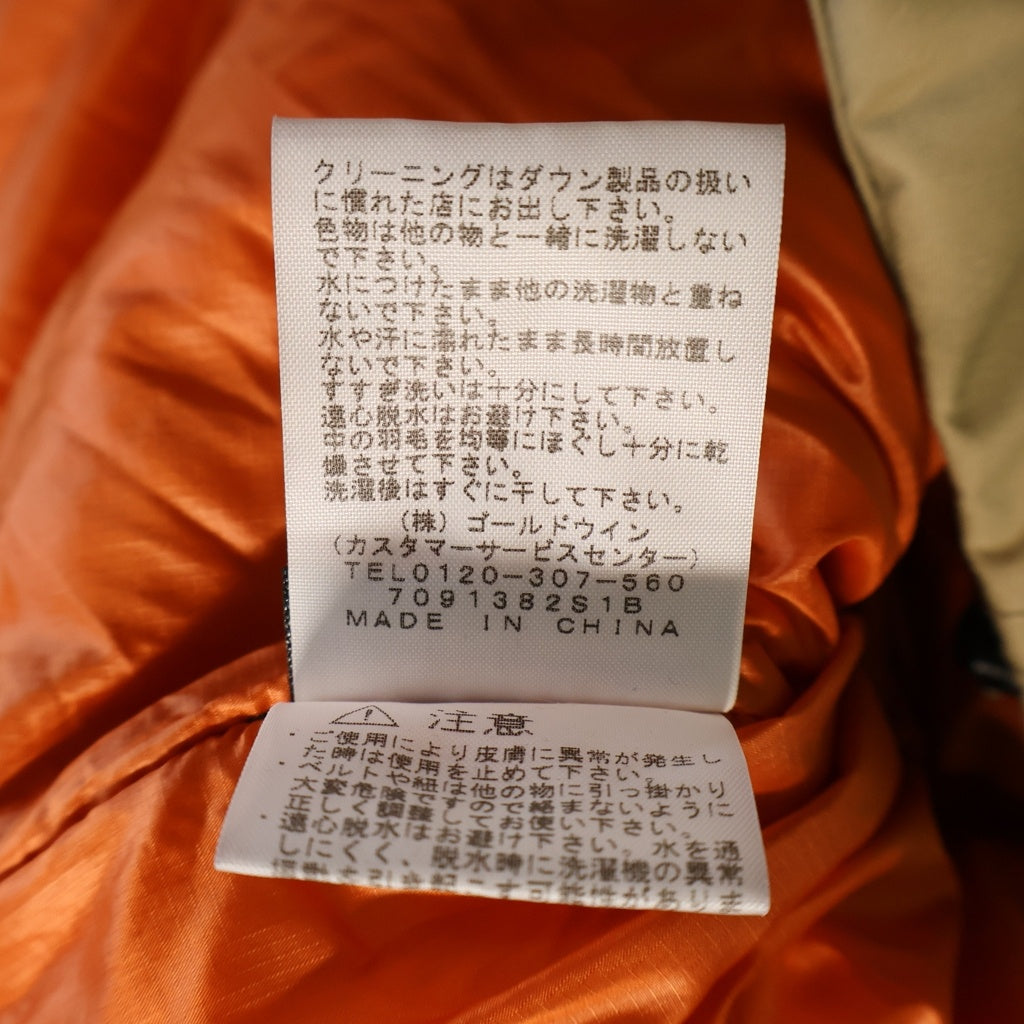 クリーニングはダウン製品の扱い
に慣れた店にお出し下さい。
色物は他の物と一緒に洗濯しない
で下さい。
水につけたまま他の洗濯物と重ね
ないで下さい。
水や汗に濡れたまま長時間放置し
ないで下さい。
すすぎ洗いは十分にして下さい。
遠心脱水はお避け下さい。
中の羽毛を均等にほぐし十分に乾
燥させて下さい。
洗濯後はすぐに干して下さい。
(株)ゴールドウイン
(カスタマーサービスセンター)
TEL0120-307-560
7091382S1B
MADE IN CHINA
⚠ 注意
・ご使用により皮膚に異常が発生し
た時は使用を止めて下さい。
・ベルトや紐で他の物に引っ掛かり
大変危険ですので絡まないように
正しく調整してお使い下さい。
・遠心脱水はお避け下さい。水を通
しにくく、脱水時に洗濯機の異常